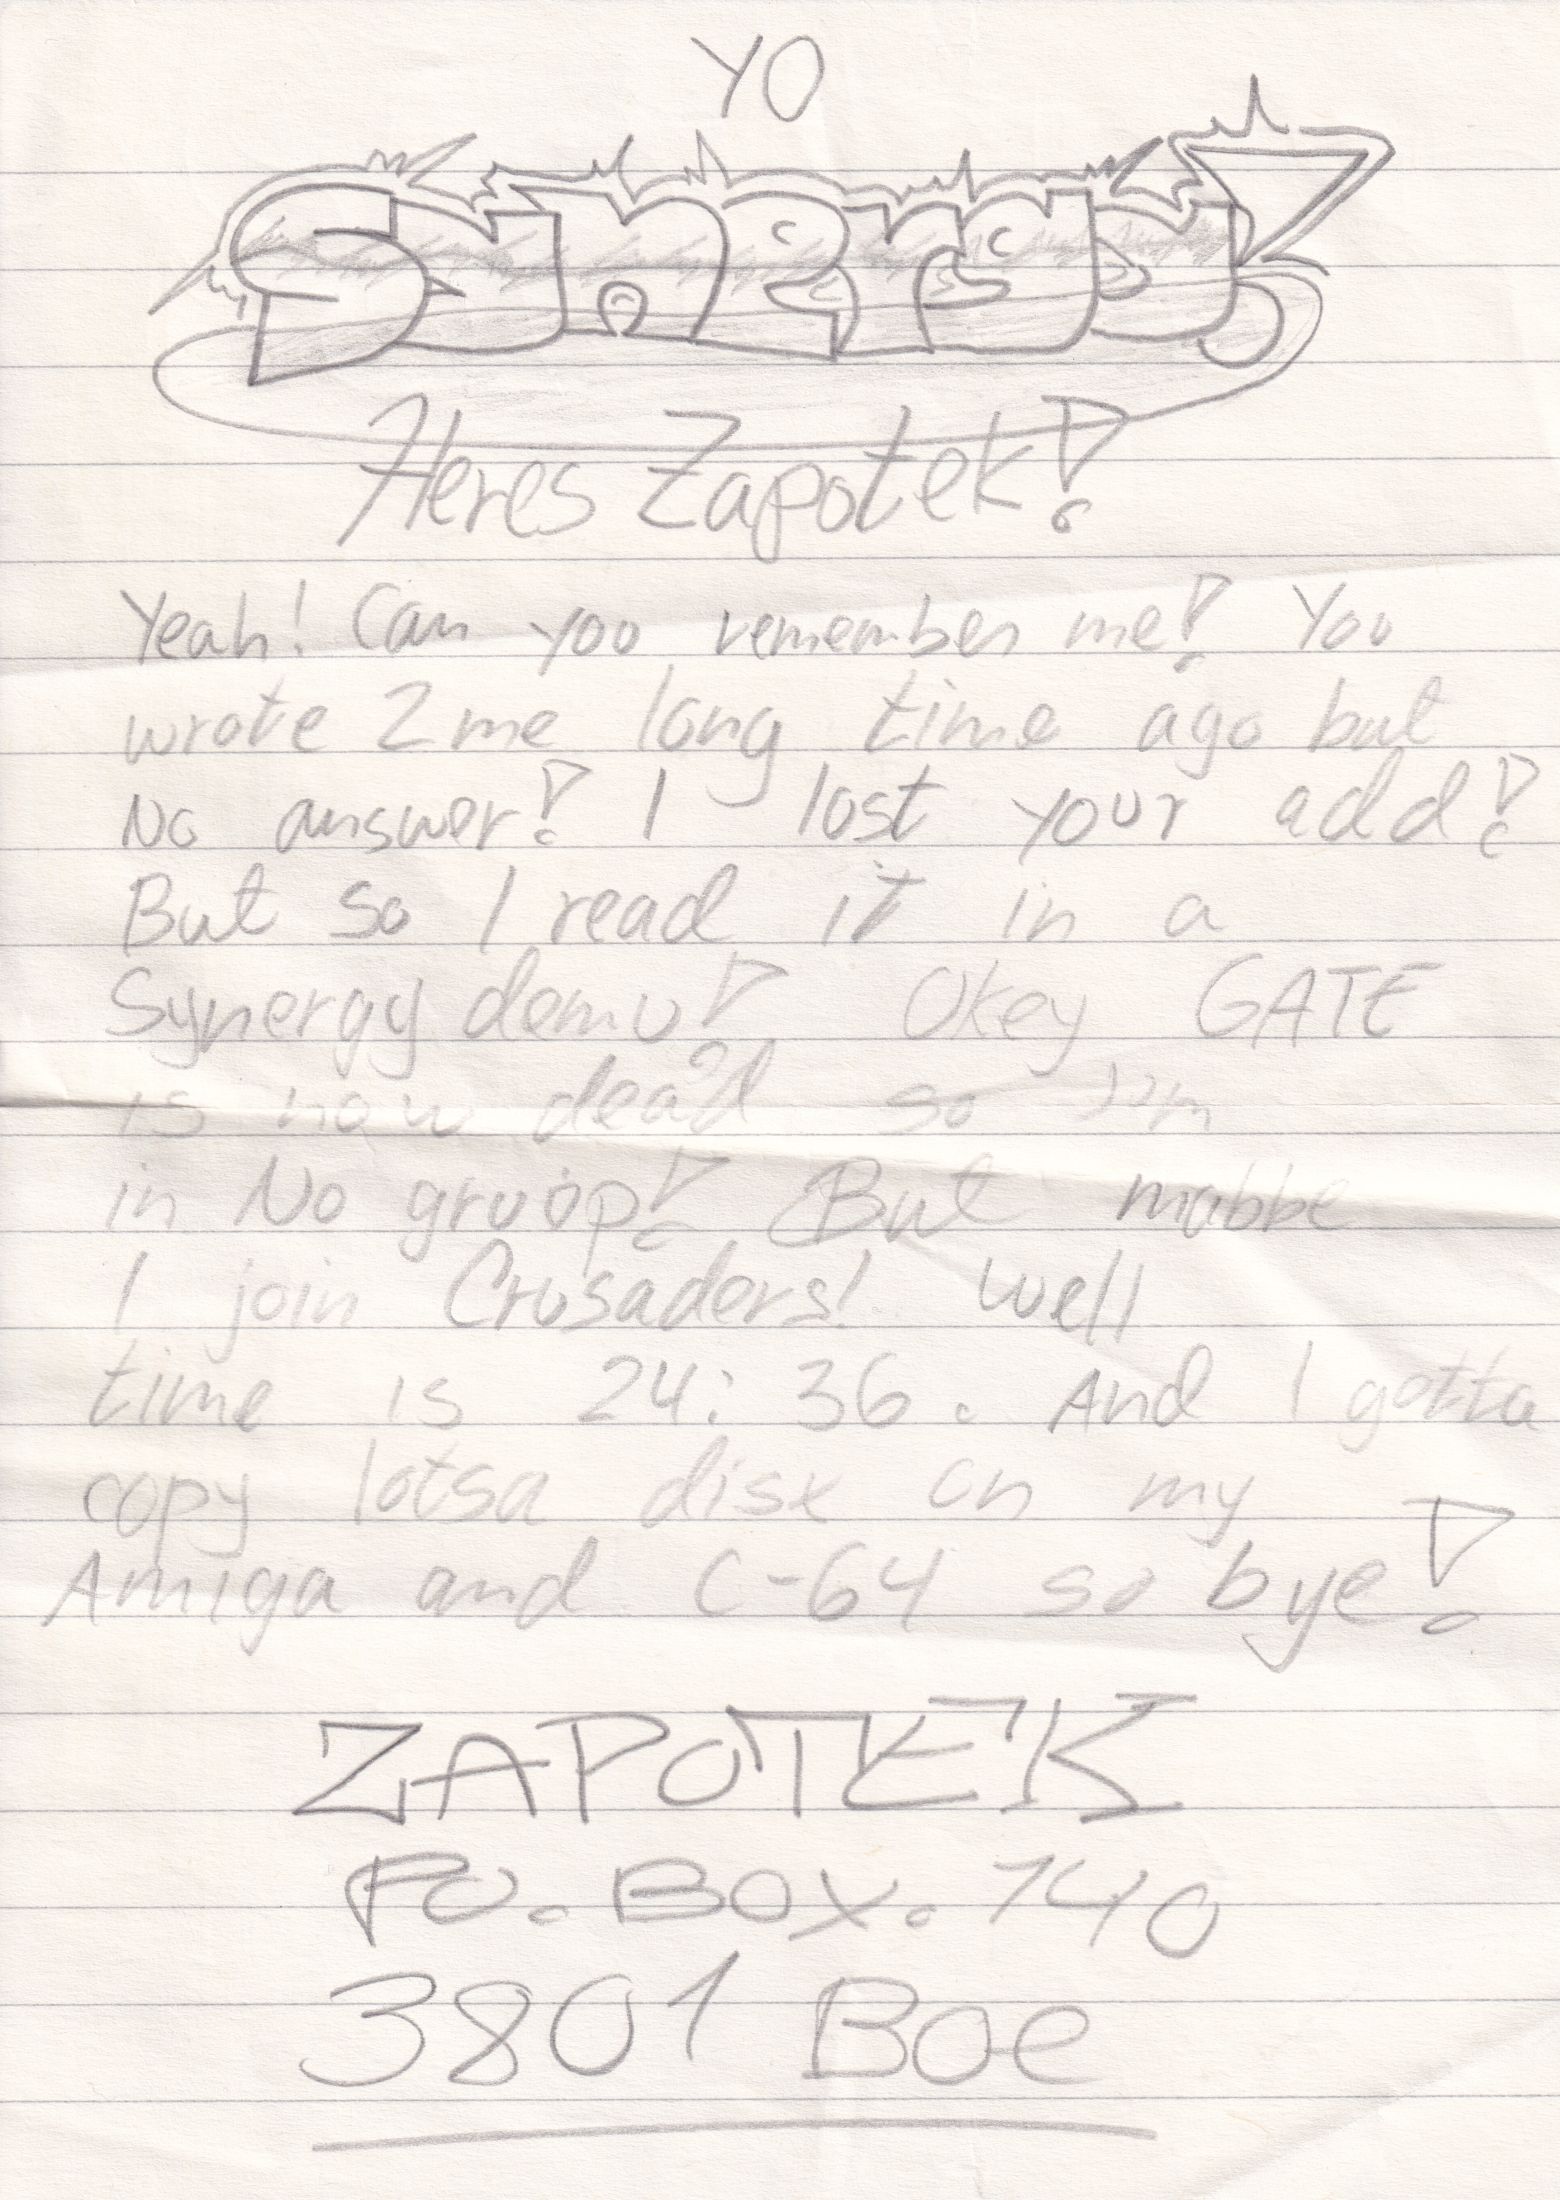 YO
Synergy!
Heres Zapotek!
Yeah! Can you remember me! You
wrote 2 me long time ago but
No answer! I lost your add!
But so I read it in a
Synergy demo! Okey GATE
is now dead so I'm
in No group! But mabbe
I join Crusaders! Well
time is 24:36. And I gotta
copy lotsa disx on my
Amiga and C-64 so bye!
ZAPOTEK
PO.BOX.740
3801 Boe